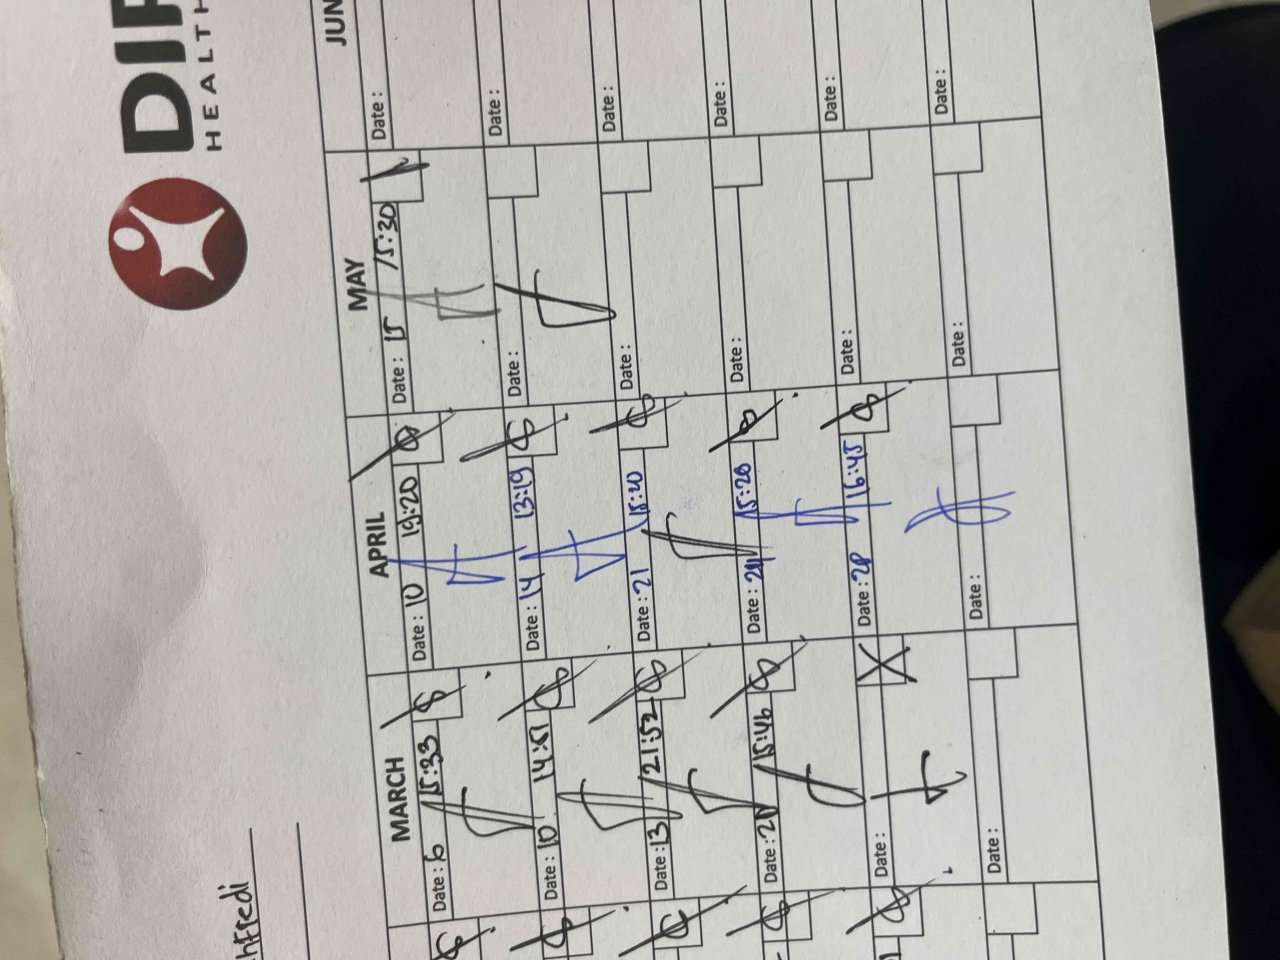 DIR
HEALTH
hfredi
MARCH
Date: 6 15:33
Date: 10 14:51
Date: 13 21:52
Date: 21 15:46
Date:
Date:
APRIL
Date: 10 19:20
Date: 14 13:19
Date: 21 15:20
Date: 15:20
Date: 28 16:45
Date:
MAY
Date: 15 15:30
Date:
Date:
Date:
Date:
Date:
JUN
Date:
Date:
Date:
Date:
Date:
Date: